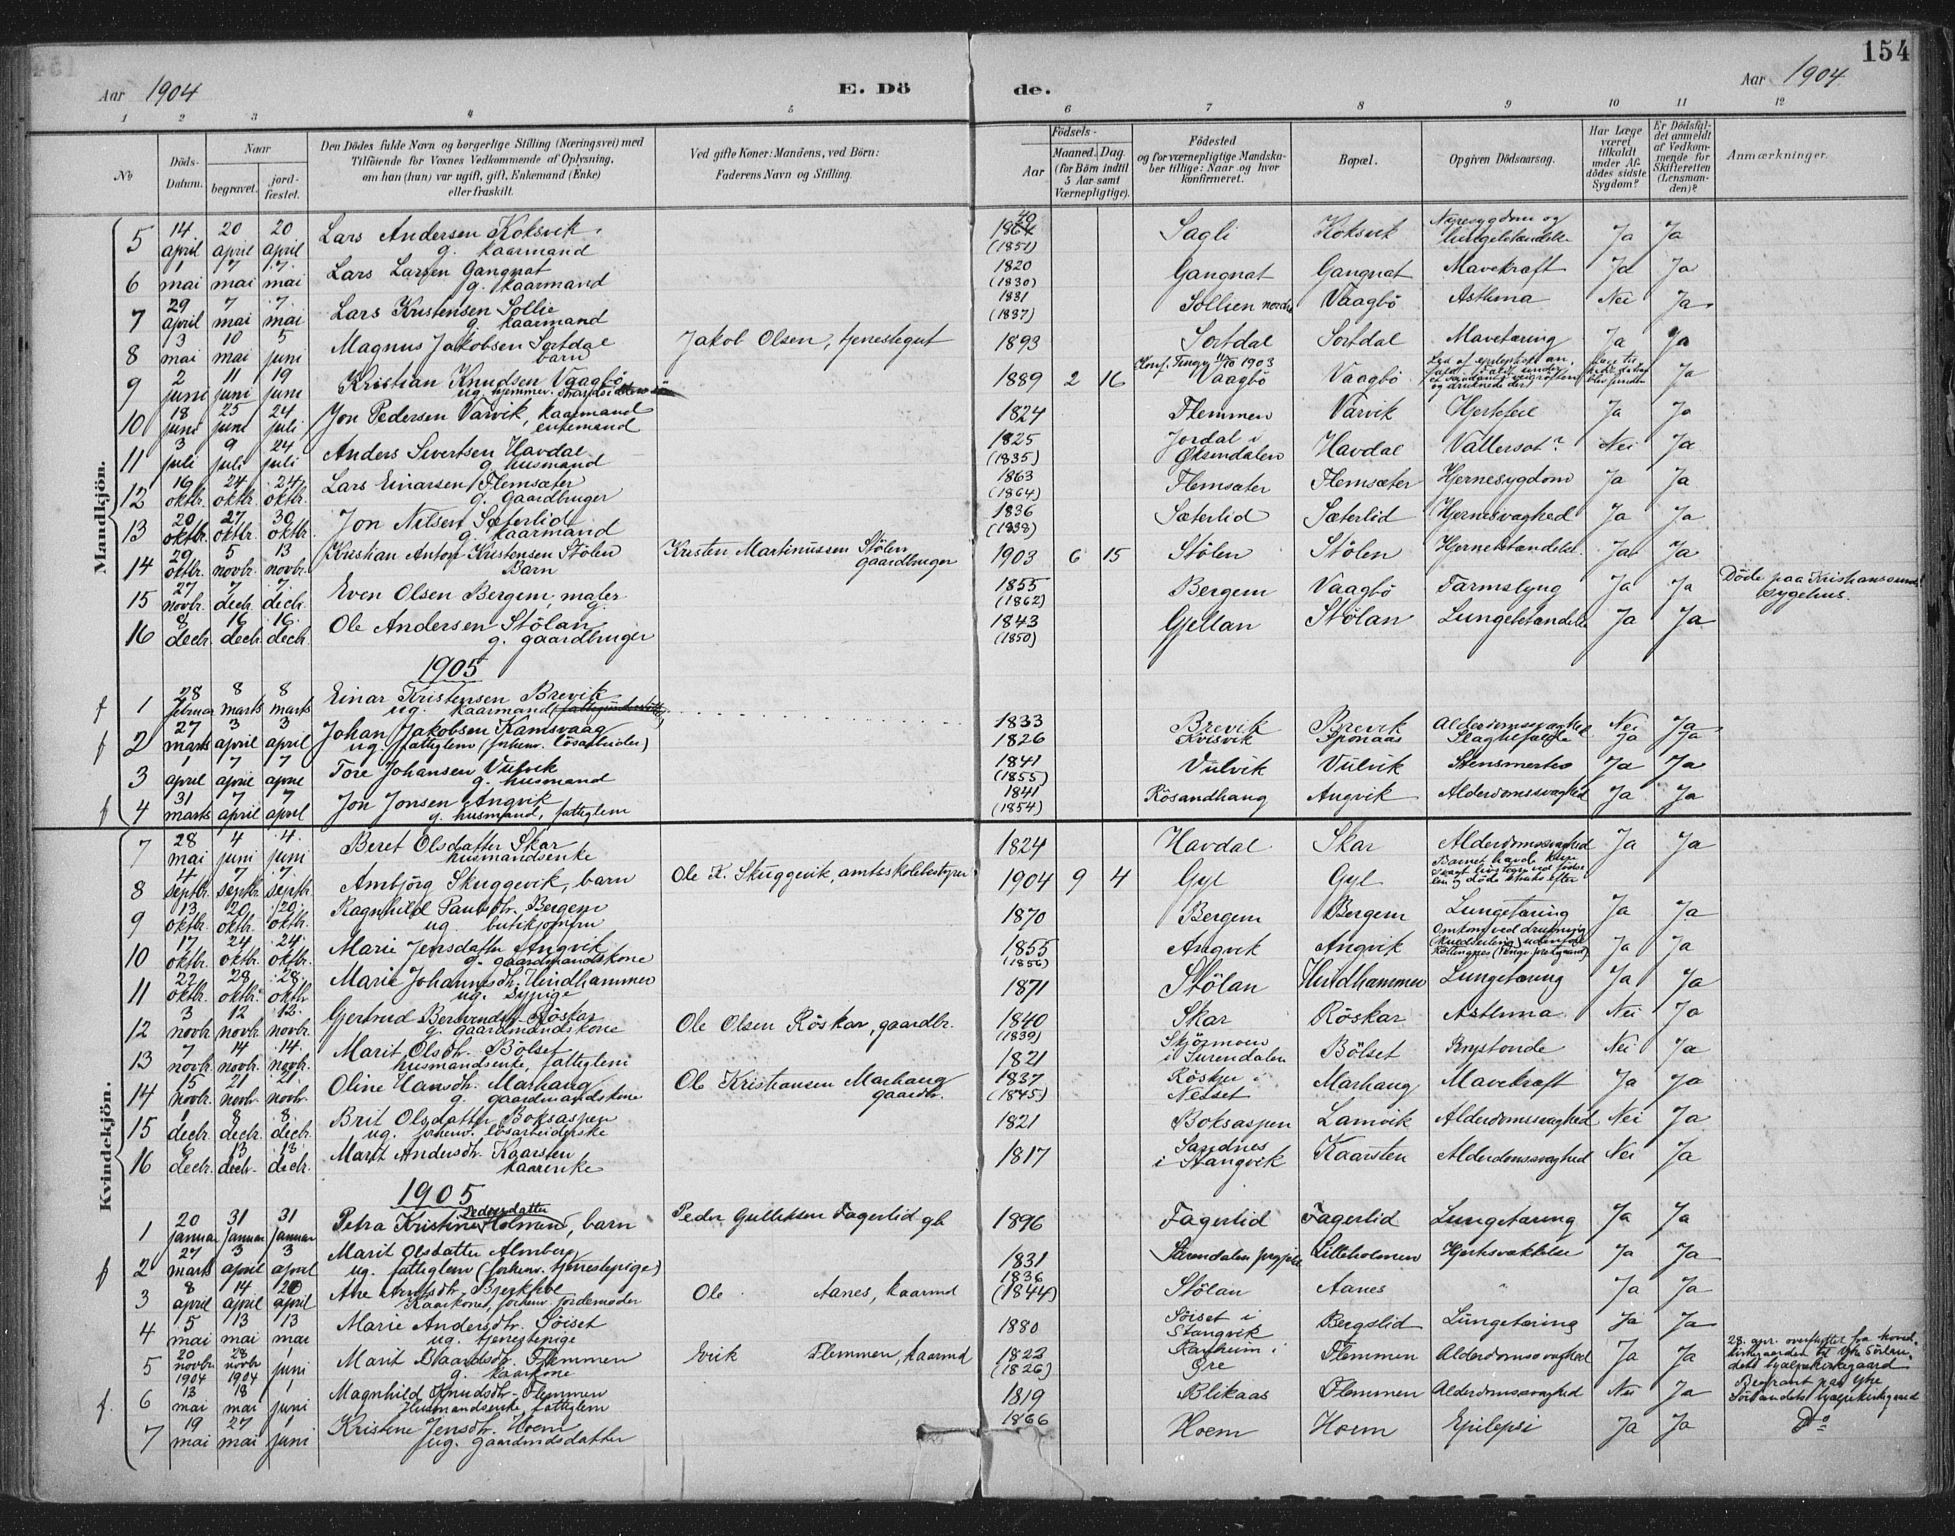 154
Aar 1904
E. Dö
de.
Aar 1904.
1 2 3 4 5 6 7 8 9 10 11 12
No
Döds-Datum.
Naar
begravet.
jord-fæstet.
Den Dödes fulde Navn og borgerlige Stilling (Næringsvei) med
Tilföiende for Voxnes Vedkommende af Oplysning,
om han (hun) var ugift, gift, Enkemand (Enke)
eller fraskilt.
Ved gifte Koner: Mandens, ved Börn:
Faderens Navn og Stilling.
Födsels-
Aar
Maaned. Dag.
(for Börn indtil
5 Aar samt
Værnepligtige).
Födested
og for værnepligtige Mandska-
ber tillige: Naar og hvor
konfirmeret.
Bopæl.
Opgiven Dödsaarsag.
Har Læge
været
tilkaldt
under Af-
dödes sidste
Sygdom?
Er Dödsfal-
det anmeldt
af Vedkom-
mende for
Skifteretten
(Lensman-
den)?
Anmærkninger.
Mandkjön.
5 14 april 20 april 20 april Lars Andersen Koksvik g. kaarmand (1851) Sagli Koksvik Nyresygdom og lungebetændelse Ja Ja
6 1 mai 7 mai 7 mai Lars Larsen Gangnat g. kaarmand 1820 (1830) Gangnat Gangnat Mavekræft Ja Ja
7 29 april 7 mai 7 mai Lars Kristensen Sollie g. kaarmand 1831 (1837) Sollien nordre Vaagbö Asthma Nei Ja
8 3 mai 10 mai 5 juni Magnus Jakobsen Sortdal barn Jakob Olsen, tjenestegut 1893 Sortdal Sortdal Mavetæring Ja Ja
9 2 juni 11 juni 19 juni Kristian Knudsen Vaagbö ug. 1889 2 16 Konf. Tingv. 1903 Vaagbö Vaagbö og druknede der Ja
10 18 juni 25 juni 24 juli Jon Pedersen Varvik, kaarmand enkemand 1824 Flemmen Varvik Hjertefeil Ja Ja
11 3 juli 9 juli 24 juli Anders Sivertsen Havdal g. husmand 1825 (1835) Jordal i Öksendalen Havdal Vattersot? Nei Ja
12 16 oktbr. 24 oktbr. 24 oktbr. Lars Einarsen Flemsæter g. gaardbruger 1863 (1864) Flemsæter Flemsæter Hjernesygdom Ja Ja
13 20 oktbr. 27 oktbr. 30 oktbr. Jon Nilsen Sæterlid g. kaarmand 1836 (1838) Sæterlid Sæterlid Hjernesvaghed Ja Ja
14 29 oktbr. 5 novbr. 13 novbr. Kristian Anton Kristensen Stölen Barn Kristen Martinussen Stölen gaardbruger 1903 6 15 Stölen Stölen Hjernebetændelse Ja Ja
15 27 novbr. 7 decb. 7 decb. Even Olsen Bergem, maler g. 1855 (1862) Bergem Vaagbö Tarmslyng Ja Ja Döde paa Kristianssunds sygehus.
16 8 decb. 16 decb. 16 decb. Ole Andersen Stölan g. gaardbruger 1843 (1850) Gjellan Stölan Lungebetændelse Ja Ja
1905
f 1 28 februar 8 marts 8 marts Einar Kristensen Brevik ug. kaarmand 1833 Brevik Brevik Alderdomssvaghed Nei Ja
f 2 27 marts 3 april 3 april Johan Jakobsen Kamsvaag ug. fattiglem (forhenv. lösarbeider) 1826 Kvisvik Sponaas Slagtilfælde Ja Ja
3 1 april 7 april 7 april Tore Johansen Vulvik g. husmand 1841 (1855) Vulvik Vulvik Stensmerter Ja Ja
f 4 31 marts 7 april 7 april Jon Jonsen Angvik g. husmand, fattiglem 1841 (1854) Rösandhaug Angvik Alderdomssvaghed Ja Ja
Kvindekjön.
7 28 mai 4 juni 4 juni Beret Olsdatter Skar husmandsenke 1824 Havdal Skar Alderdomssvaghed Ja Ja
8 4 septbr. 7 septbr. 7 septbr. Ambjörg Skuggevik, barn Ole K. Skuggevik, amtsskolebestyrer 1904 9 4 Gyl Gyl Barnet havde kun svagt livstegn ved födselen og döde straks efter
9 13 oktbr. 20 oktbr. 20 oktbr. Ragnhild Paulsdtr. Bergem ug. butikjomfru 1870 Bergem Bergem Lungetæring Ja Ja
10 17 oktbr. 24 oktbr. 24 oktbr. Marie Jensdatter Angvik g. gaardmandskone 1855 (1856) Angvik Angvik Omkom ved drukning (kuldseiling) udenfor Kottingnes (Tingv. prestegjæld) Ja Ja
11 22 oktbr. 28 oktbr. 28 oktbr. Marie Johannesdtr. Hindhammer ug. sypige 1871 Stölan Huldhammer Lungetæring Ja Ja
12 3 novbr. 12 novbr. 12 novbr. Gertrud Röskar g. gaardmandskone Ole Olsen Röskar, gaardbr. 1840 (1839) Skar Röskar Asthma Nei Ja
13 7 novbr. 14 novbr. 14 novbr. Marit Olsdtr. Bölset husmandsenke, fattiglem 1821 Skjörmoen i Surendalen Bölset Brystonde Nei Ja
14 15 novbr. 21 novbr. 21 novbr. Oline Hansdtr. Marhaug g. gaardmandskone Ole Kristiansen Marhaug gaardbr. 1837 (1845) Röskar i Nesset Marhaug Mavekræft Ja Ja
15 1 decbr. 8 decbr. 8 decbr. Brit Olsdatter Boksaspen ug. forhenv. lösarbeiderske 1821 Boksaspen Lamvik Alderdomssvaghed Nei Ja
16 6 decbr. 13 decbr. 13 decbr. Marit Andersdtr. Kaarsten kaarenke 1817 Sandnes i Stangvik Kaarsten Alderdomssvaghed Nei Ja
1905
1 20 januar 31 januar 31 januar Petra Kristine Pedersdatter Holmen, barn Peder Gulliksen Fagerlid gb 1896 Fagerlid Fagerlid Lungetæring Ja Ja
f 2 27 marts 3 april 3 april Marit Olsdatter Almberg ug. fattiglem (forhenv. tjenestepige) 1831 Surendalen Lilleholmen Hjertesvækkelse Ja Ja
3 8 april 14 april 20 april Ane Arntsdtr. Bjerkhol Kaarkone, forhenv. jordemoder Ole Aanes, kaarmd 1836 (1844) Stölan Aanes " Ja Ja
4 5 mai 13 mai 13 mai Marie Andersdtr. Söiset ug. tjenestepige 1880 Söiset i Stangvik Bergslid Lungetæring Ja Ja
5 20 novbr 1904 28 novbr 1904 1 juni Marit Flemmen g. kaarkone Erik Flemmen, kaarmd 1822 (1826) Ranheim i Öre Flemmen Alderdomssvaghed Ja Ja 28. apr. overflyttet fra hoved-kirkegaarden til Sörlandets hjælpekirkegaard
f. 6 13 mai 18 mai 1 juni Magnhild Knudsdtr. Flemmen Husmandsenke, fattiglem 1819 Blikaas Flemmen Alderdomssvaghed Nei Ja Begravet paa Sörlandets hjælpekirkegaard
7 19 mai 27 mai 1 juni Kristine Jensdtr. Hoem ug. gaardmdsdatter 1866 Hoem Hoem Epilepsi Ja Ja Do